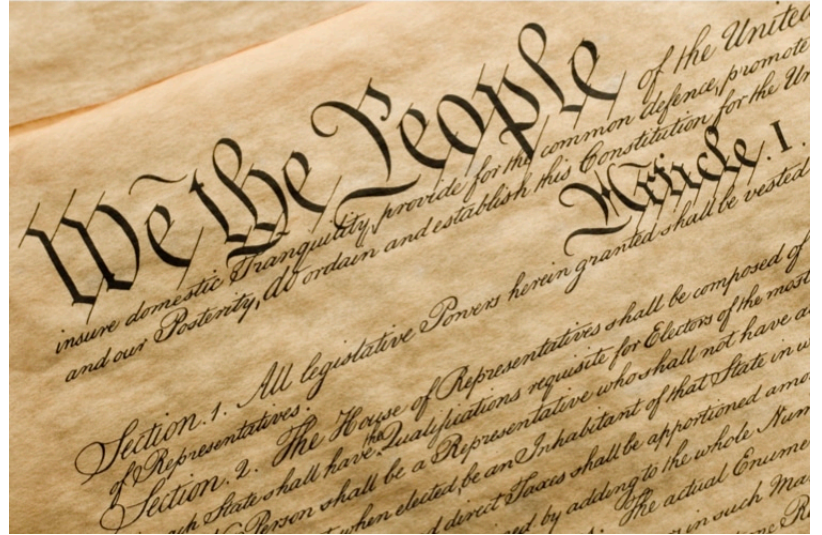 We the People of the United
insure domestic Tranquility, provide for the common defence, promote
and our Posterity, do ordain and establish this Constitution for the Un
Article. I.
Section. 1. All legislative Powers herein granted shall be vested
of Representatives.
Section. 2. The House of Representatives shall be composed of
ach State shall have the Qualifications requisite for Electors of the most
No Person shall be a Representative who shall not have a
t when elected, be an Inhabitant of that State in w
d direct Taxes shall be apportioned amo
ned by adding to the whole Num
The actual Enume
in such Ma